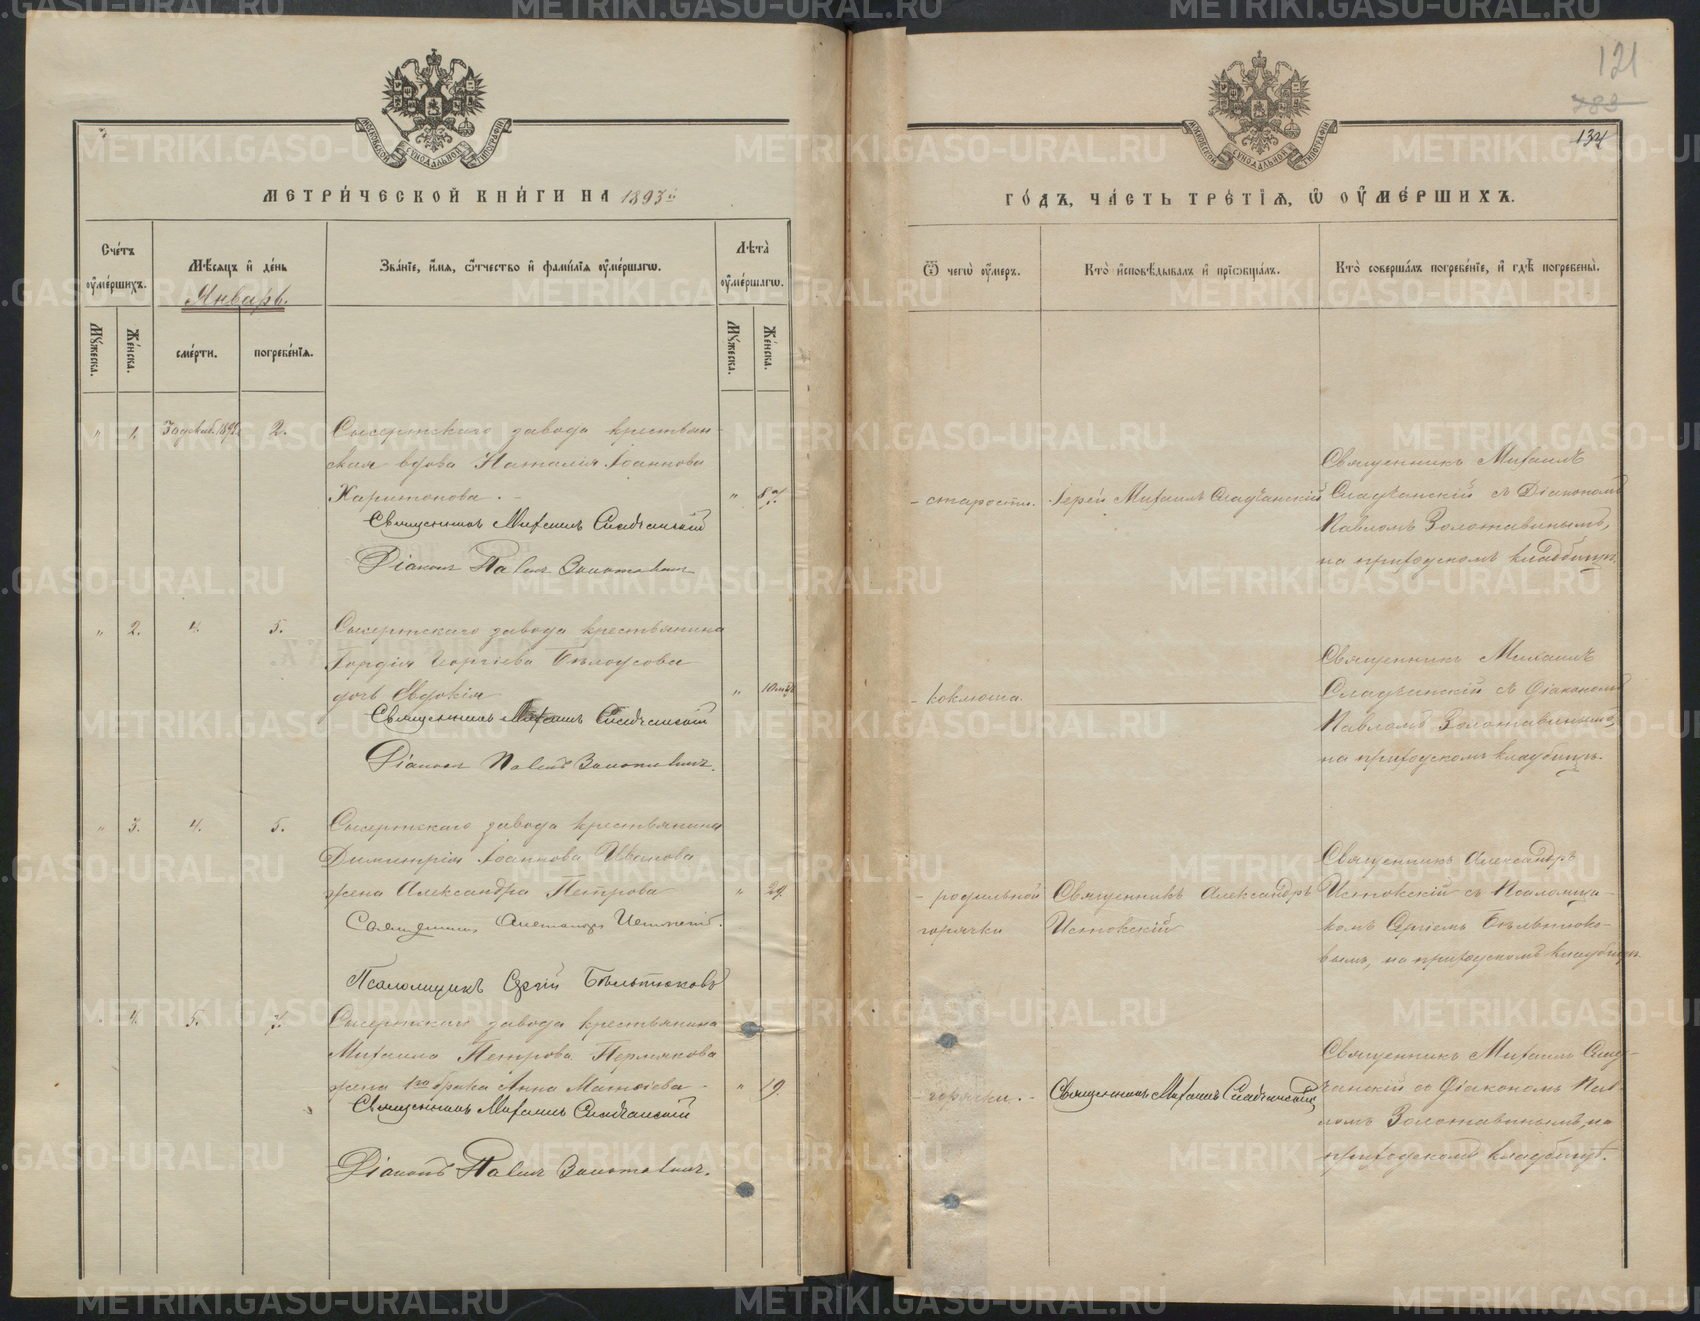 МЕТРИКИ.GASO-URAL.RU
121
783
134
МОСКОВСКОЙ СѴНОДАЛЬНОЙ ТИПОГРАФІИ
МОСКОВСКОЙ СѴНОДАЛЬНОЙ ТИПОГРАФІИ
МЕТРИ́ЧЕСКОЙ КНИ́ГИ НА 1893й
ГО́ДЪ, ЧА́СТЬ ТРЕ́ТІѦ, Ѽ ОУ҆МЕ́РШИХЪ.
Сче́тъ оу҆ме́ршихъ.
Мѣ́сяцъ и҆ де́нь
Январь.
Зва́нїе, и҆́мѧ, ѻ҆́тчество и҆ фами́лїѧ оу҆ме́ршагѡ.
Лѣ́та оу҆ме́ршагѡ.
Ѿ чегѡ̀ оу҆́меръ.
Кто̀ и҆сповѣ́дывалъ и҆ прїѡбща́лъ.
Кто̀ соверша́лъ погребе́нїе, и҆ гдѣ̀ погребены̀.
Мꙋ́жеска.
Же́нска.
сме́рти.
погребе́нїѧ.
Мꙋ́жеска.
Же́нска.
" 1. 30 декаб. 2. Сысертскаго завода крестьян-
ская вдова Наталія Іоаннова
Харитонова. " 87.
Священникъ Михаилъ Сладчанскій
Діаконъ Павелъ Золотавинъ
- старости. Іерей Михаилъ Сладчанскій
Священникъ Михаилъ
Сладчанскій съ Діакономъ
Павломъ Золотавинымъ,
на приходскомъ кладбищѣ.
" 2. 4. 5. Сысертскаго завода крестьянина
Гордія Георгіева Бѣлоусова
дочь Евдокія " 10 мѣс.
Священникъ Михаилъ Сладчанскій
Діаконъ Павелъ Золотавинъ.
- коклюша.
Священникъ Михаилъ
Сладчанскій съ Діакономъ
Павломъ Золотавинымъ,
на приходскомъ кладбищѣ.
" 3. 4. 5. Сысертскаго завода крестьянина
Димитрія Іоаннова Иванова
жена Александра Петрова " 29.
Священникъ Александръ Истокскій.
Псаломщикъ Сергій Бѣльтюковъ
- родильной
горячки
Священникъ Александръ
Истокскій
Священникъ Александръ
Истокскій съ Псаломщи-
комъ Сергіемъ Бѣльтюко-
вымъ, на приходскомъ кладбищѣ.
4. 5. 7. Сысертскаго завода крестьянина
Михаила Петрова Пермякова
жена 1го брака Анна Матѳіева " 19.
Священникъ Михаилъ Сладчанскій
Діаконъ Павелъ Золотавинъ.
- горячки. - Священникъ Михаилъ Сладчанскій
Священникъ Михаилъ Слад-
чанскій съ Діакономъ Пав-
ломъ Золотавинымъ, на
приходскомъ кладбищѣ.